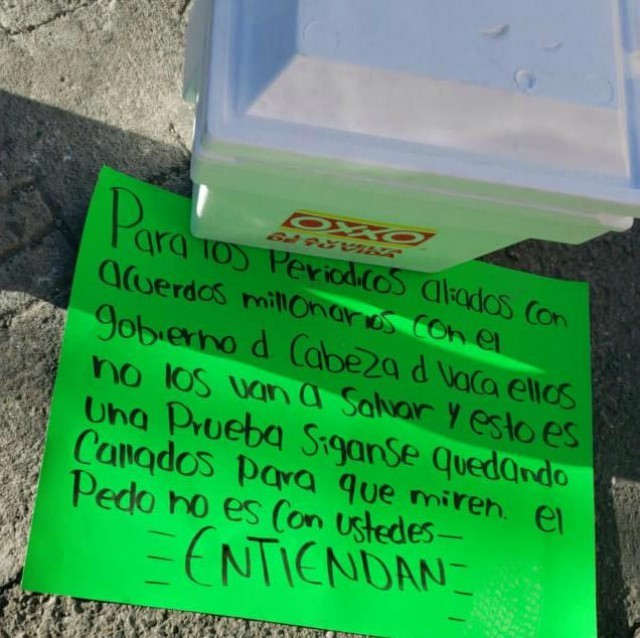 OXXO
A LA VUELTA
DE TU VIDA
Para los Periodicos aliados con
acuerdos millonarios con el
gobierno d Cabeza d Vaca ellos
no los van a salvar y esto es
una Prueba Siganse quedando
Callados para que miren. el
Pedo no es con ustedes—
ENTIENDAN